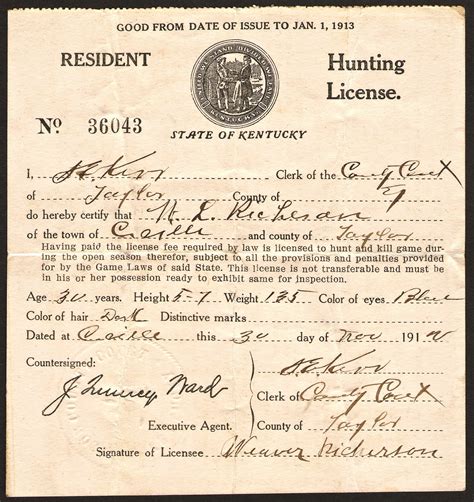 GOOD FROM DATE OF ISSUE TO JAN. 1, 1913
RESIDENT Hunting
License.
No. 36043
STATE OF KENTUCKY
I, Kerr Clerk of the County Court
of Taylor County of
do hereby certify that W. L. Richerson
of the town of C.ville and county of Taylor
Having paid the license fee required by law is licensed to hunt and kill game during
the open season therefor, subject to all the provisions and penalties provided
for by the Game Laws of said State. This license is not transferable and must be
in his or her possession ready to exhibit same for inspection.
Age 30 years. Height 5-7 Weight 135 Color of eyes Blue
Color of hair Dark Distinctive marks
Dated at C.ville this 30 day of Nov 1912
Countersigned: Kerr
J. Quincy Ward Clerk of County Court
Executive Agent. County of Taylor
Signature of Licensee Weaver Richerson